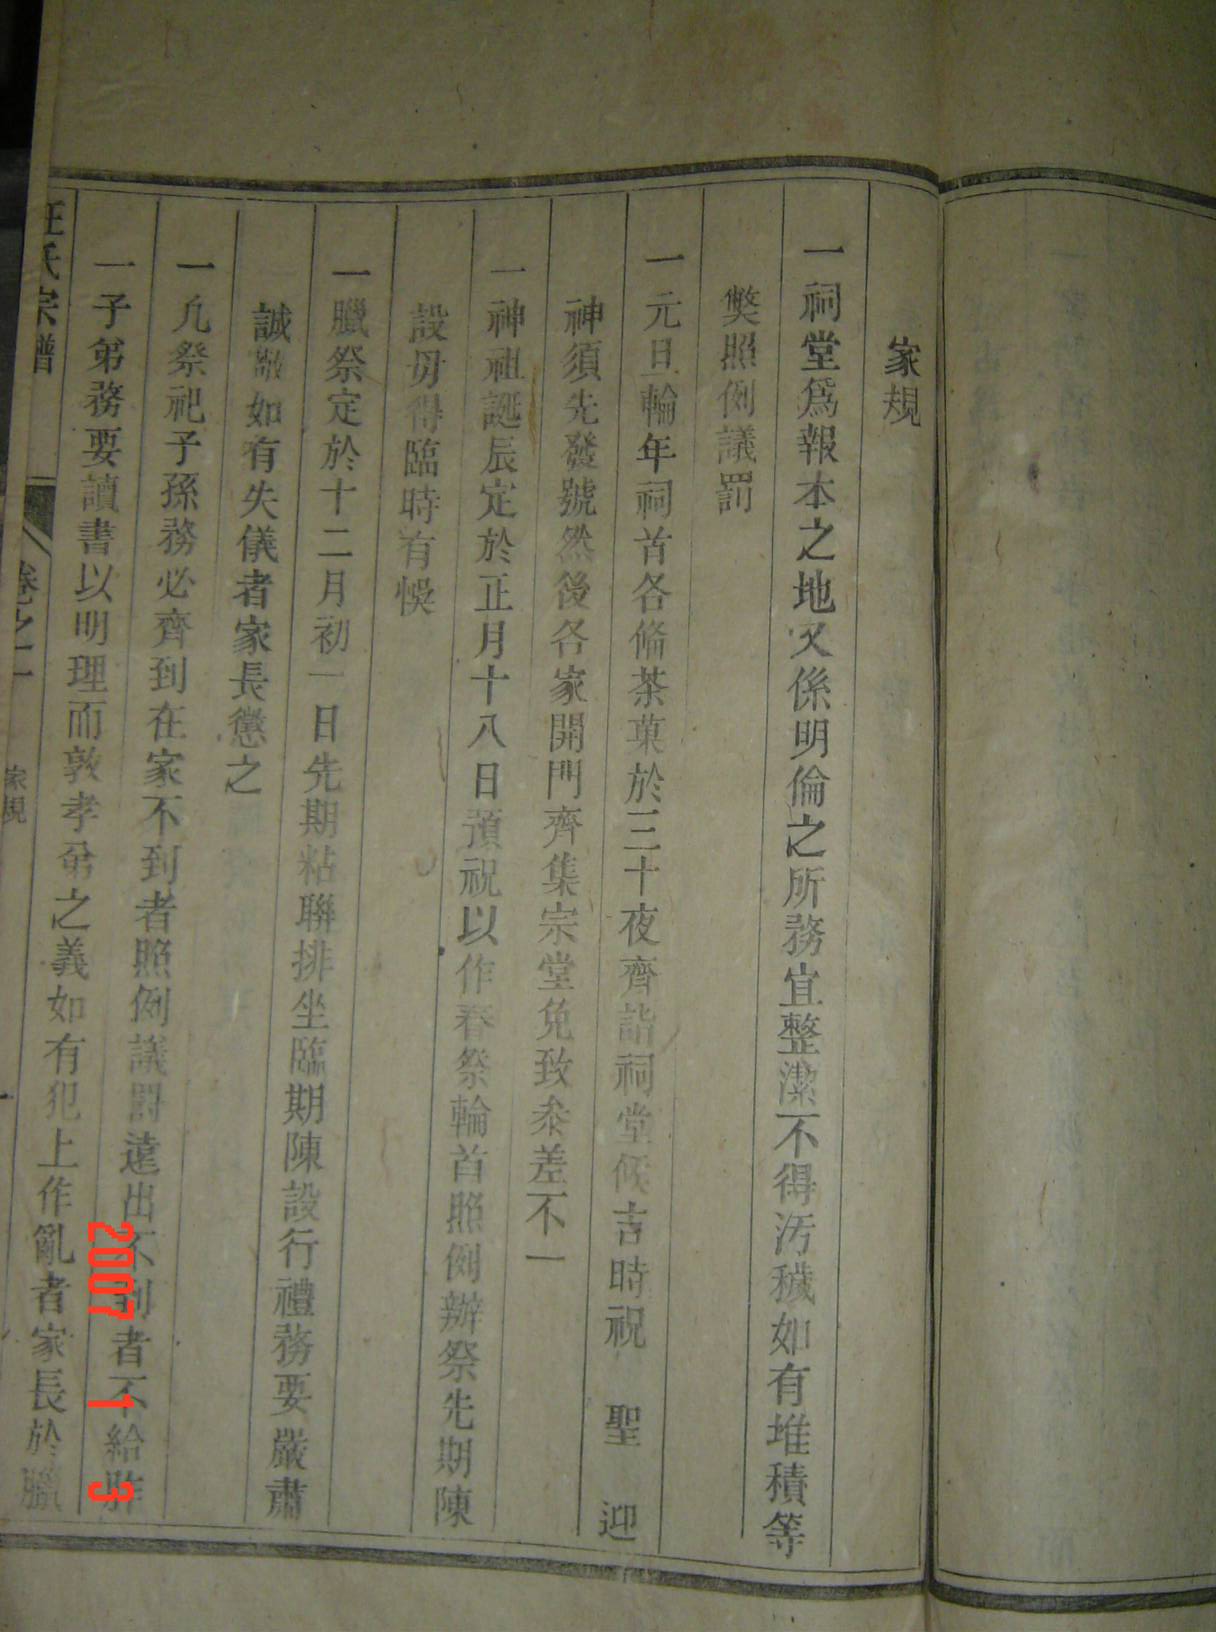 家規
一祠堂爲報本之地又係明倫之所務宜整潔不得汚穢如有堆積等
獘照例議罰
一元旦輪年祠首各偹茶菓於三十夜齊詣祠堂候吉時祝 聖 迎
神須先發號然後各家開門齊集宗堂免致叅差不一
一神祖誕辰定於正月十八日預祝以作春祭輪首照例辦祭先期陳
設毋得臨時有悞
一臘祭定於十二月初一日先期粘聯排坐臨期陳設行禮務要嚴肅
誠敬如有失儀者家長懲之
一凢祭祀子孫務必齊到在家不到者照例議罸遠出不到者不給胙
一子弟務要讀書以明理而敦孝弟之義如有犯上作亂者家長於臘
汪氏宗譜 卷之一 家規
2007 1 3